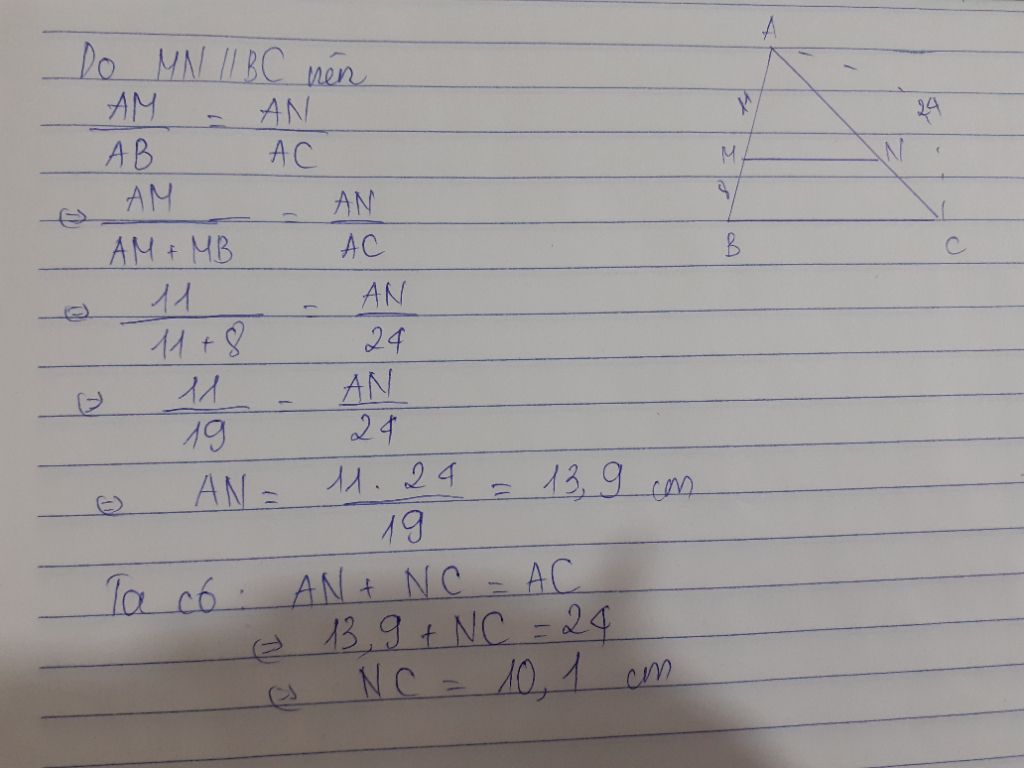 Do MN // BC nên
AM/AB = AN/AC
⇔ AM/AM + MB = AN/AC
⇔ 11/11 + 8 = AN/24
⇔ 11/19 = AN/24
⇔ AN = 11 . 24/19 = 13,9 cm
Ta có : AN + NC = AC
⇔ 13,9 + NC = 24
⇔ NC = 10,1 cm
A
11
24
M
N
8
B
C